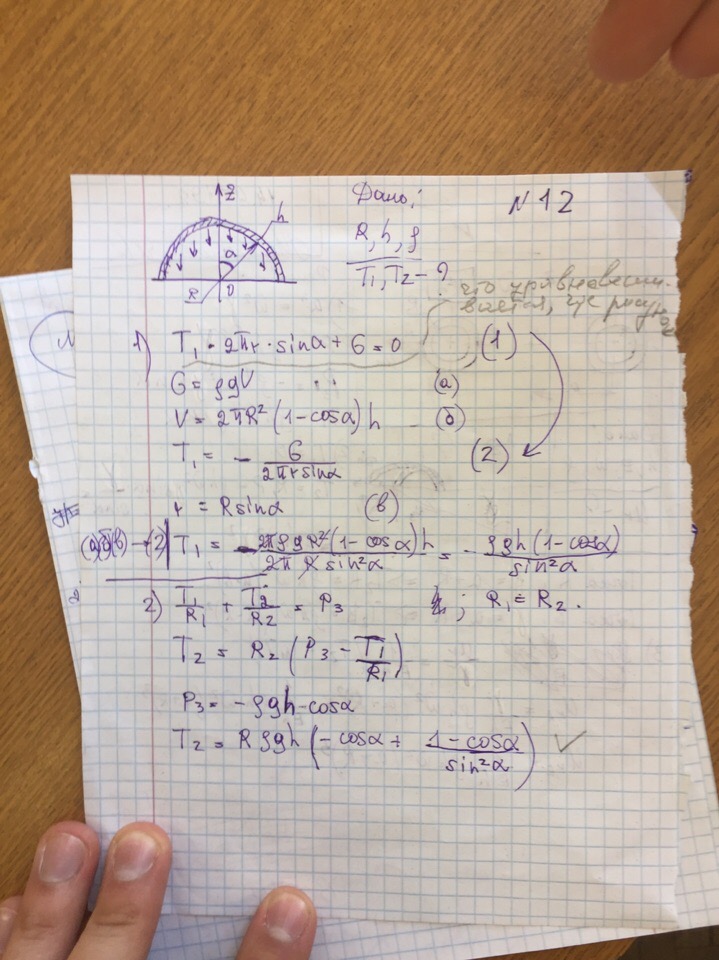 Z
h
α
R
0
Дано:
N 12
R, h, ρ
T₁, T₂ - ?
что уравновеши-
вается, где рисунок
1) T₁ · 2πr · sinα + G = 0 (1)
G = ρgV (а)
V = 2πR² (1-cosα) h (б)
T₁ = - G / 2πr sinα (2)
r = R sinα (в)
(а)(б)(в) → (2) T₁ = - 2πρgR² (1-cosα) h / 2π R sin²α = - ρgh (1-cosα) / sin²α
2) T₁/R₁ + T₂/R₂ = P₃ ; R₁ = R₂.
T₂ = R₂ (P₃ - T₁/R₁)
P₃ = - ρgh·cosα
T₂ = Rρgh (-cosα + 1-cosα / sin²α) ✓